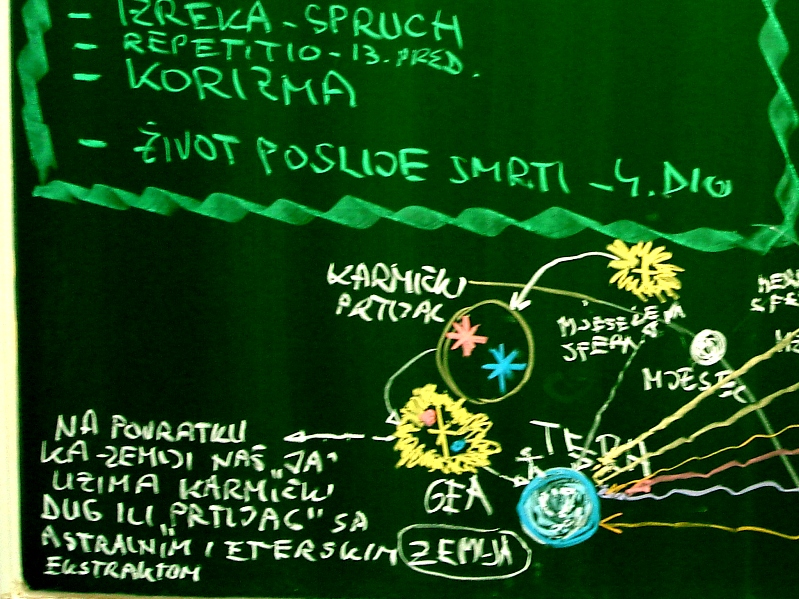 - IZREKA - SPRUCH
- REPETITIO - 13. PRED.
- KORIZMA
- ŽIVOT POSLIJE SMRTI - 4. DIO
KARMIČKI
PRTLJAG
MJESEČEVA
SFERA
MJESEC
TERA
GEA
ZEMLJA
NA POVRATKU
KA ZEMLJI NAŠ "JA"
UZIMA KARMIČKI
DUG ILI "PRTLJAG" SA
ASTRALNIM I ETERSKIM
EKSTRAKTOM